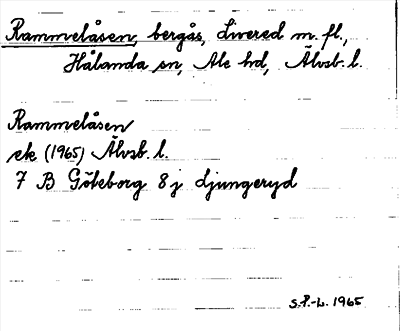 Rammelåsen, bergås, Livered m.fl.,
Hålanda sn, Ale hd, Älvsb. l.
Rammelåsen
ek (1965) Älvsb. l.
7 B Göteborg 8 j Ljungeryd
S.P.-L. 1965